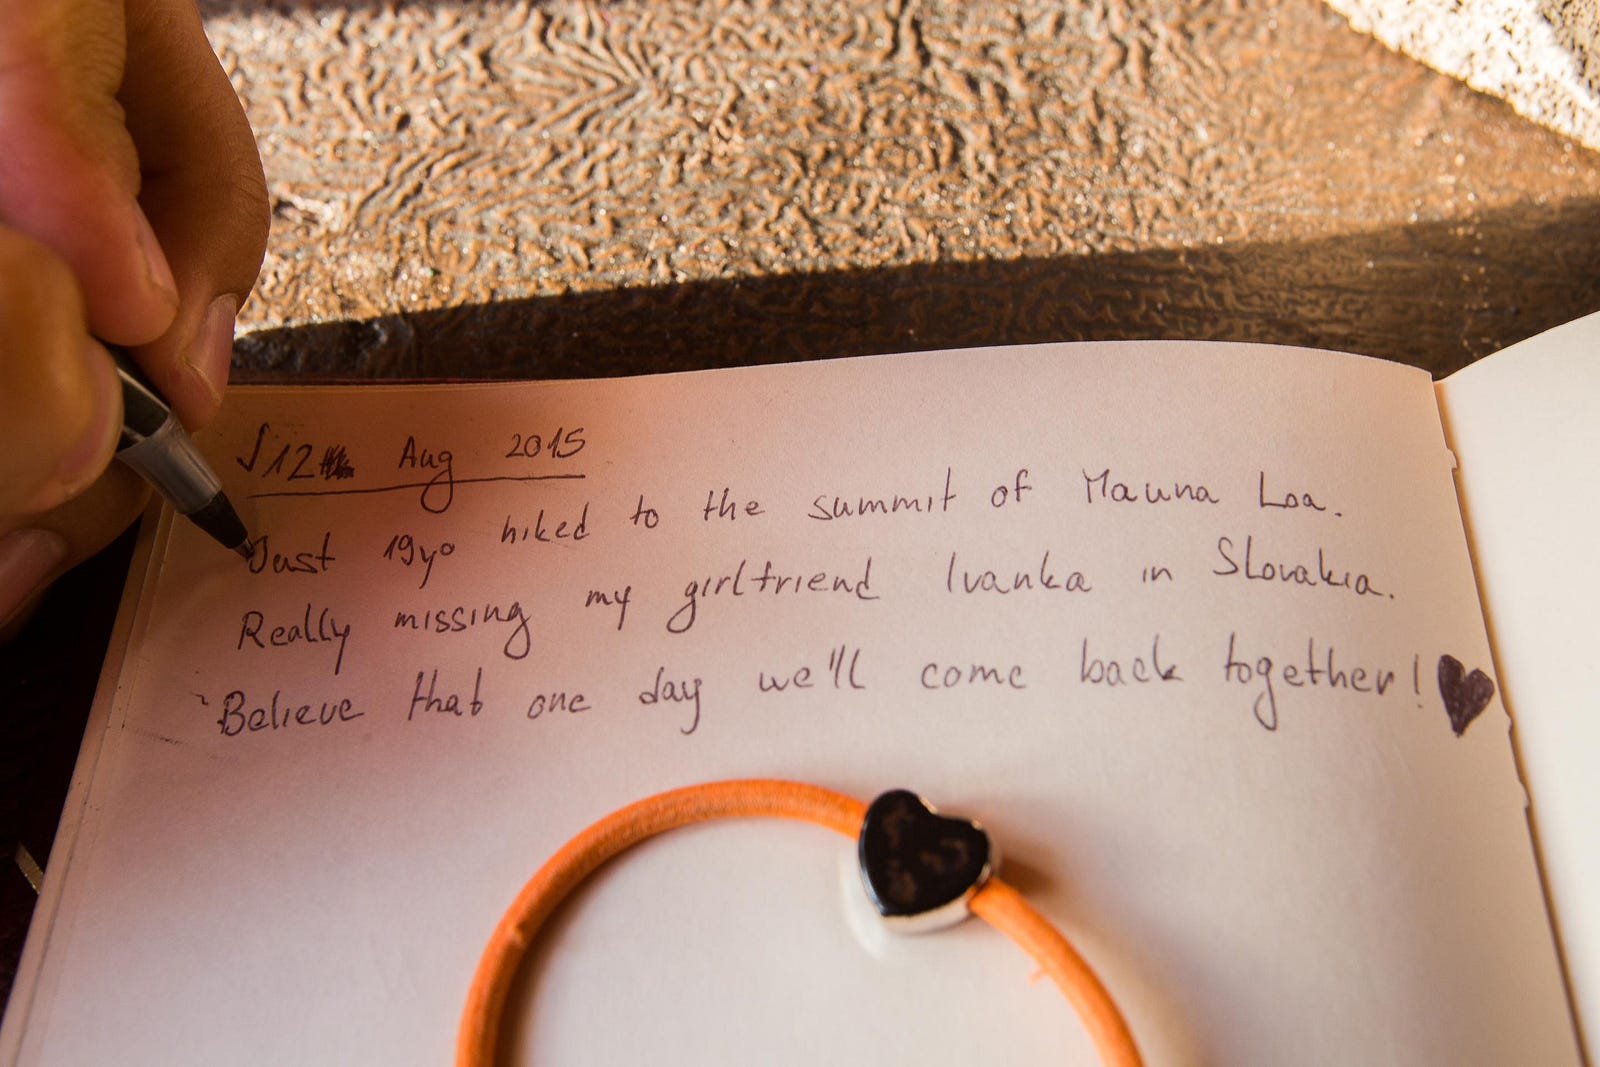 12 Aug 2015
Just 19yo hiked to the summit of Mauna Loa.
Really missing my girlfriend Ivanka in Slovakia.
Believe that one day we'll come back together!